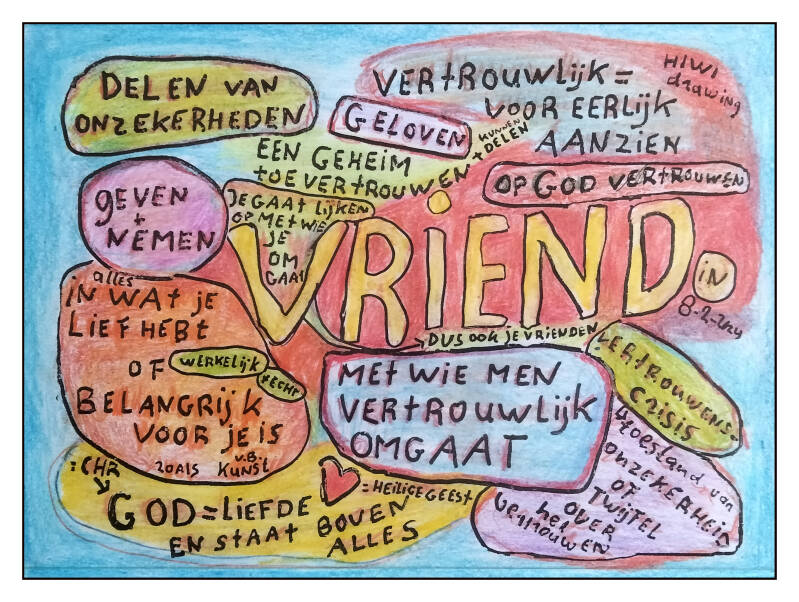 DELEN VAN
ONZEKERHEDEN
VERTROUWLIJK =
VOOR EERLIJK
AANZIEN
HIWI
drawing
GELOVEN
EEN GEHEIM
TOEVERTROUWEN
+ KUNNEN
DELEN
OP GOD VERTROUWEN
GEVEN
+
NEMEN
JE GAAT LIJKEN
OP MET WIE
JE
OM
GAAT
VRIEND.
iN
8-2-2024
→ DUS OOK JE VRIENDEN
alles
iN WAT JE
LIEF HEBT
OF WERKELIJK
+ ECHT
BELANGRIJK
VOOR JE IS
ZOALS v.B. KUNST
MET WIE MEN
VERTROUWLIJK
OMGAAT
VERTROUWENS-
CRISIS
toestand van
onzekerheid
OF
TWIJFEL
OVER
het
vertrouwen
= CHR
GOD = LIEFDE
EN STAAT BOVEN
ALLES
= HEILIGE GEEST